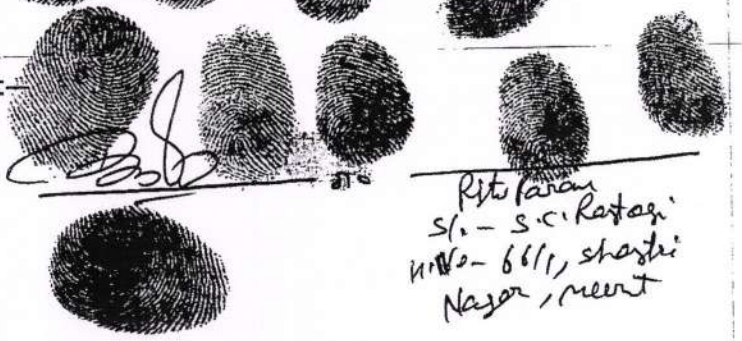 Ritu Paran
S/. - S.C. Rastogi
H.No - 66/1, Shastri
Nagar, Meerut